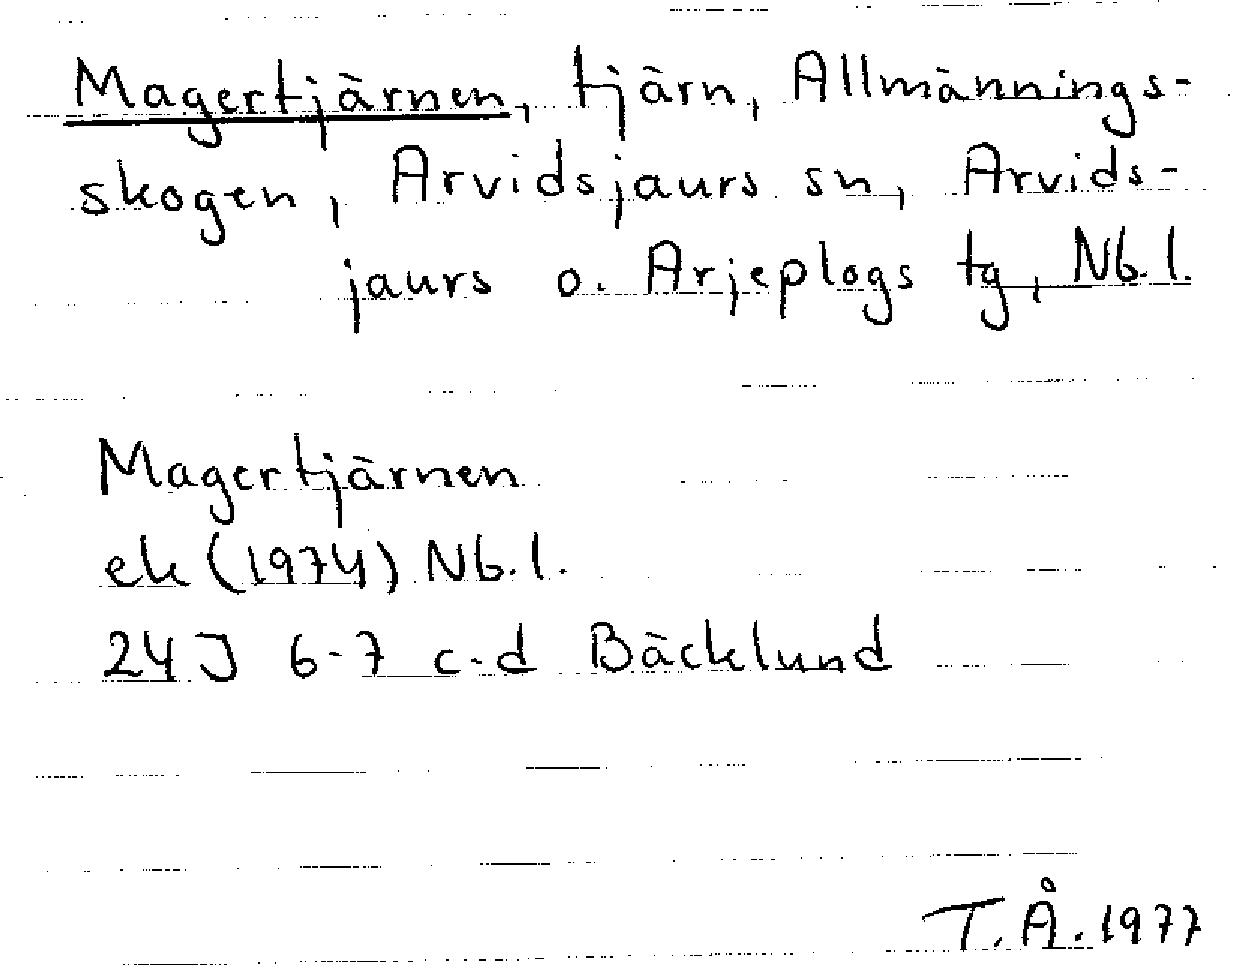 Magertjärnen, tjärn, Allmännings-
skogen, Arvidsjaurs sn, Arvids-
jaurs o. Arjeplogs tg, Nb.l.
Magertjärnen
ek (1974) Nb.l.
24J 6-7 c-d Bäcklund
T.Å. 1977